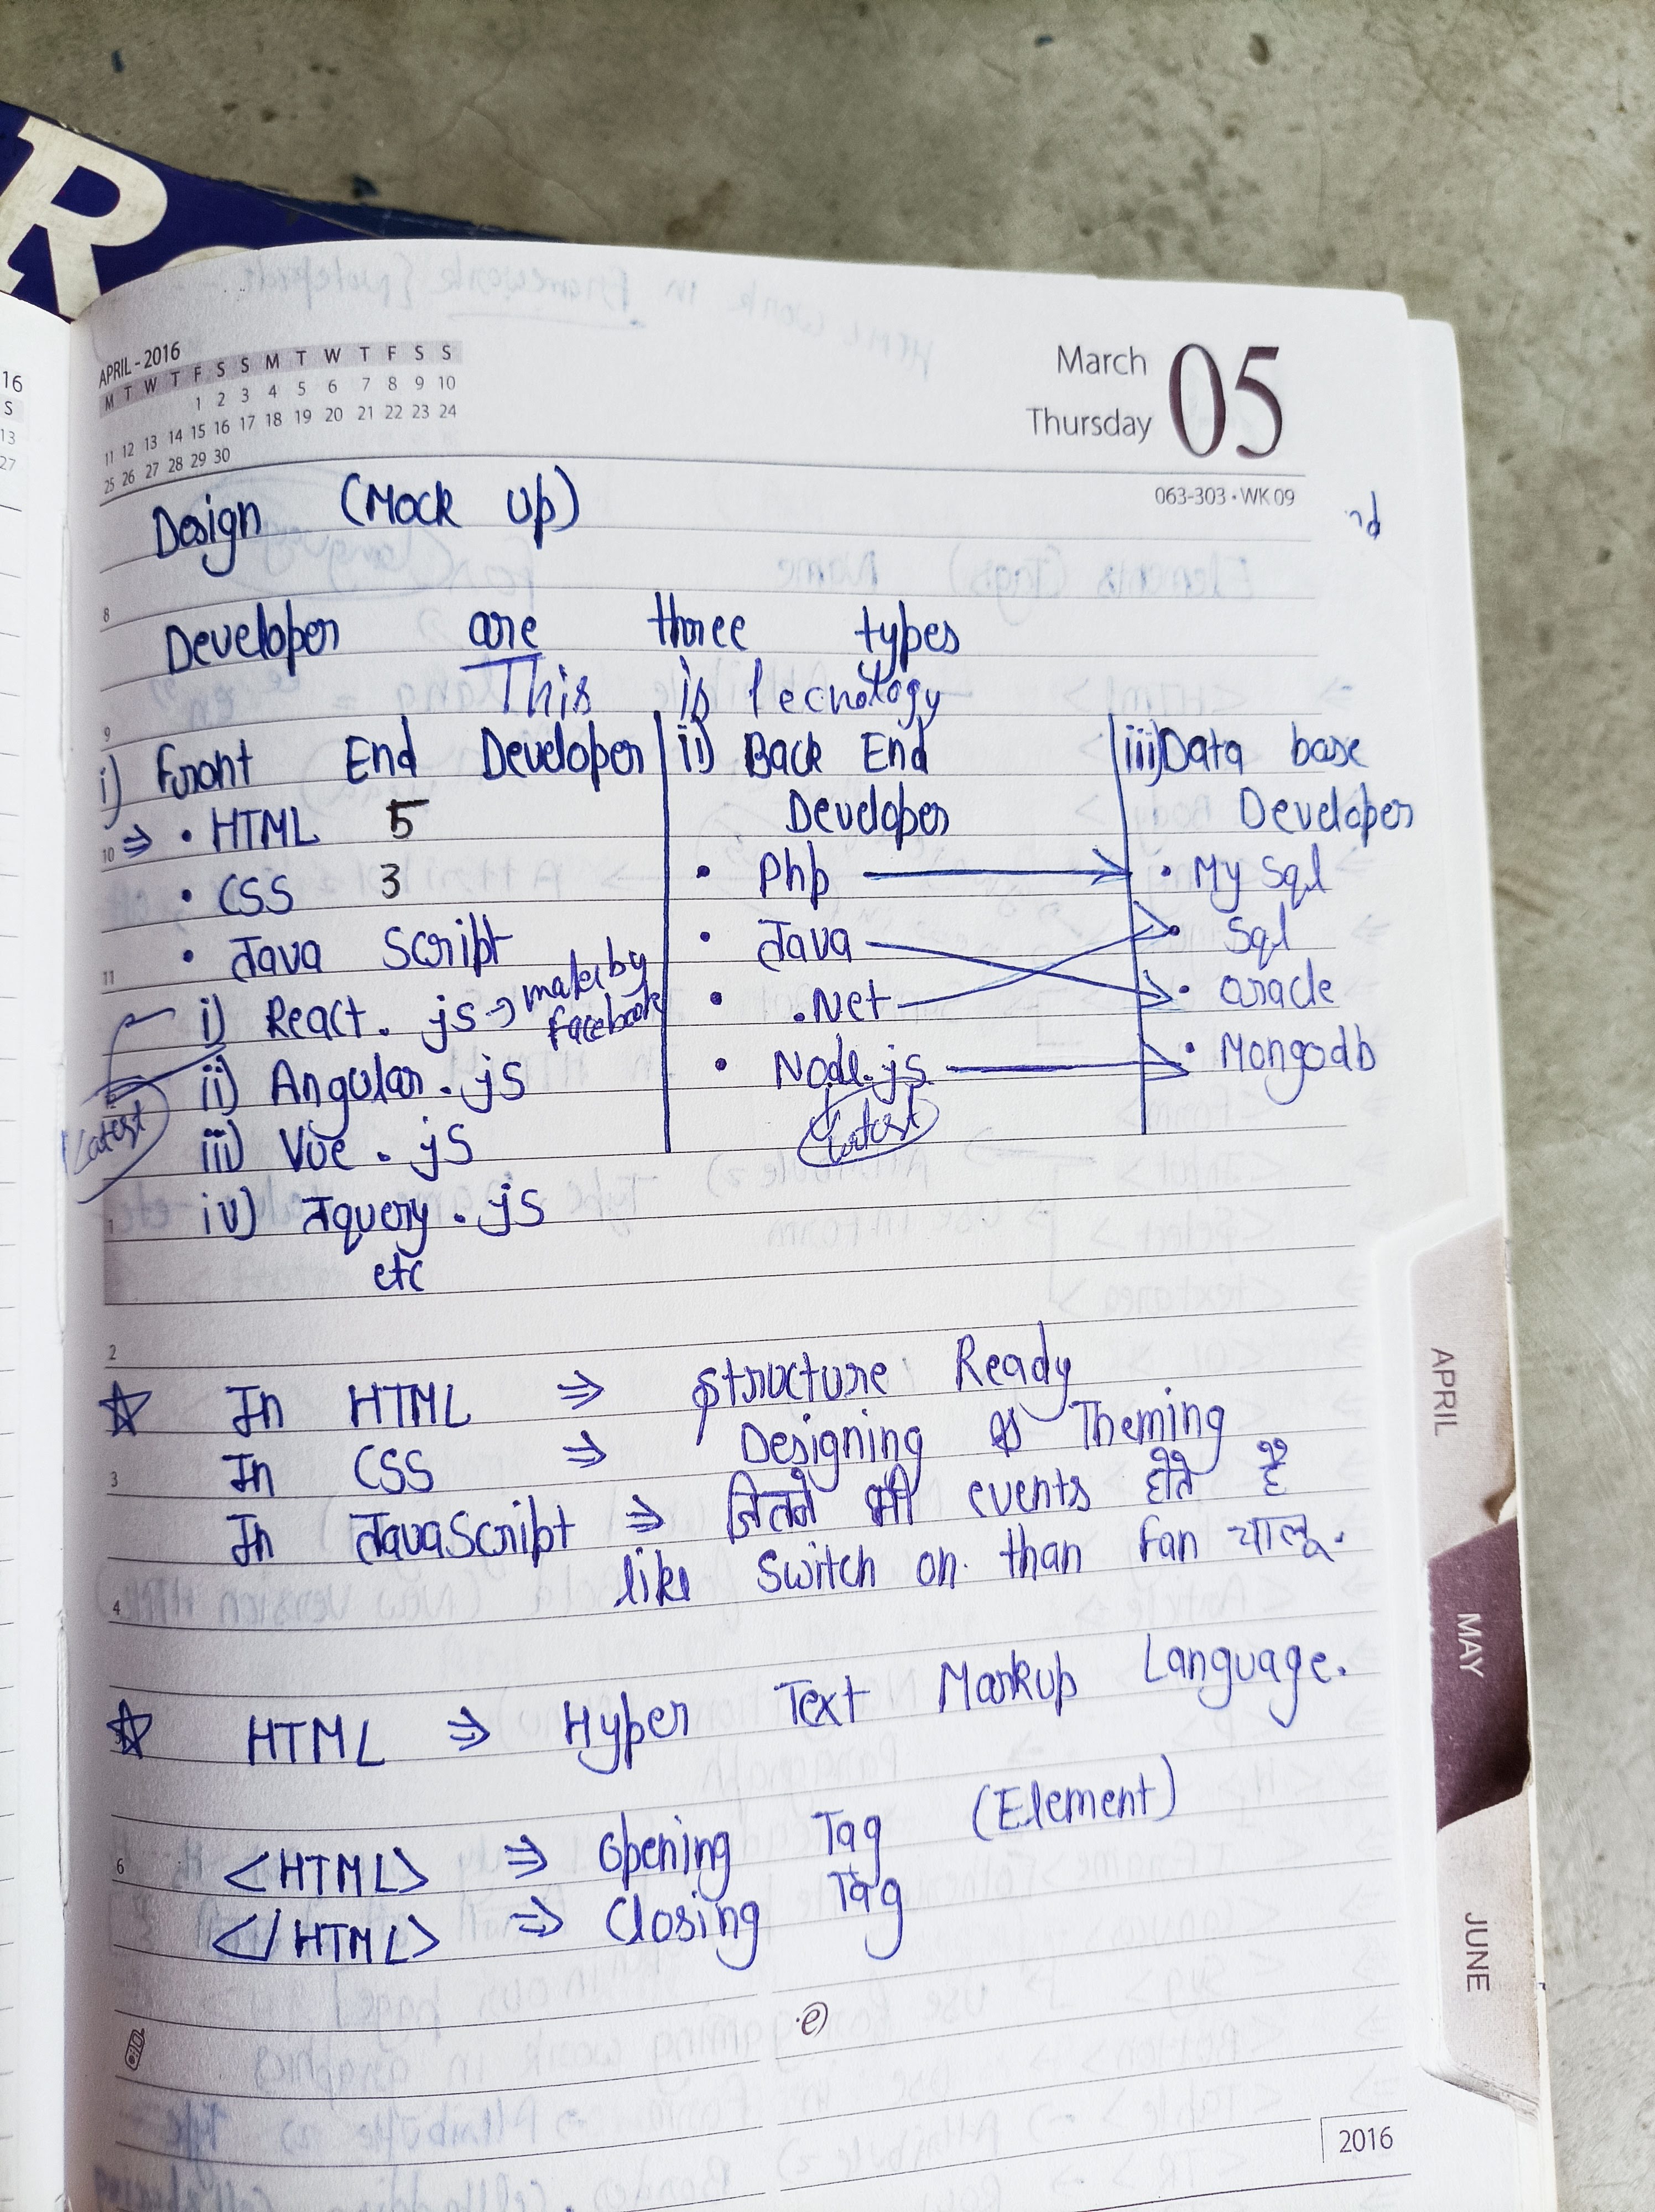 R
16
S
13
27
APRIL - 2016
M T W T F S S M T W T F S S
1 2 3 4 5 6 7 8 9 10
11 12 13 14 15 16 17 18 19 20 21 22 23 24
25 26 27 28 29 30
March
Thursday
05
063-303 • WK 09
Design (Mock up)
8
Developer are three types
This is Tecnology
9
i) Front End Developer
⇒ • HTML 5
10
• CSS 3
• Java Script
11
i) React. js → make by facebook
ii) Angular . js
Latest
iii) Vue . js
iv) Jquery . js
1
etc
ii) Back End
Developer
• Php →
• Java →
• .Net →
• Node.js →
Latest
iii) Data base
Developer
• My Sql
• Sql
• oracle
• Mongodb
2
☆ In HTML ⇒ structure Ready
In CSS ⇒ Designing & Theming
3
In JavaScript ⇒ जितने भी events होते है
like Switch on. than Fan चालू.
4
☆ HTML ⇒ Hyper Text Markup Language.
<HTML> ⇒ opening Tag (Element)
6
</HTML> ⇒ Closing Tag
e
2016
APRIL
MAY
JUNE